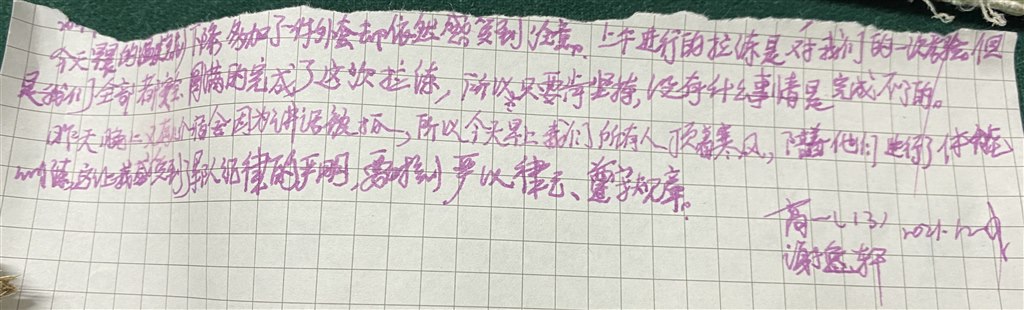 今天温度骤降,多加了件外套却依然感受到寒意。上午进行的拉练是对我们的一次考验但
是我们全部都圆满的完成了这次拉练,所以只要肯坚持,没有什么事情是完成不了的。
昨天晚上有宿舍因为讲话被抓,所以今天早上我们所有人顶着寒风,陪着他们进行了体能
训练这让我感受到军队纪律的严明,要时刻严以律己、遵守规章。
高一(13) 2021.12
谢 轩